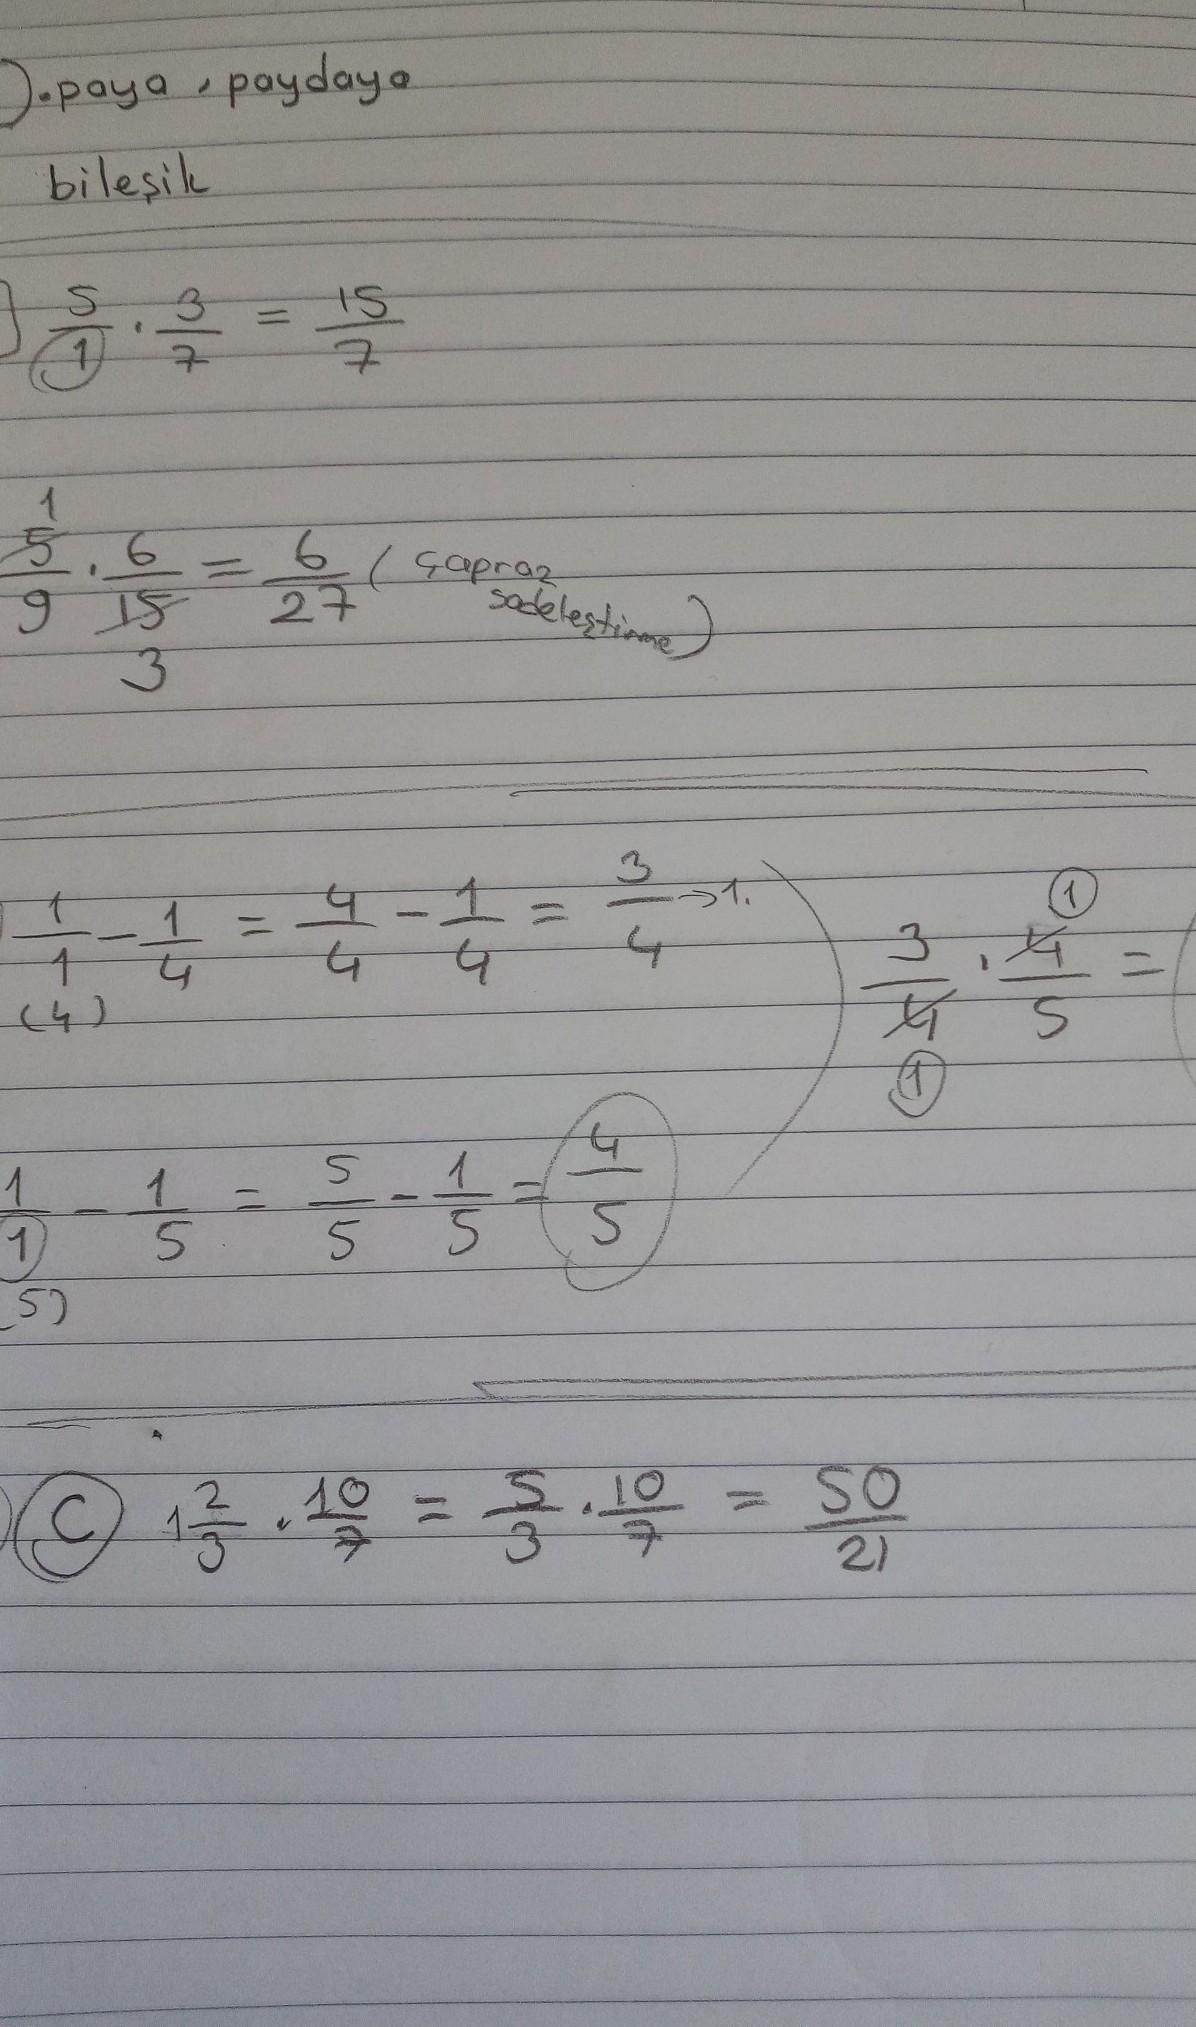 ).paya, paydaya
bileşik
5/1 . 3/7 = 15/7
1
5/9 . 6/15 = 6/27 (çapraz
sadeleştirme)
3
1/1 - 1/4 = 4/4 - 1/4 = 3/4 → 1.
(4)
1
3/4 . 4/5 =
1
1/1 - 1/5 = 5/5 - 1/5 = 4/5
(5)
C 1 2/3 . 10/7 = 5/3 . 10/7 = 50/21